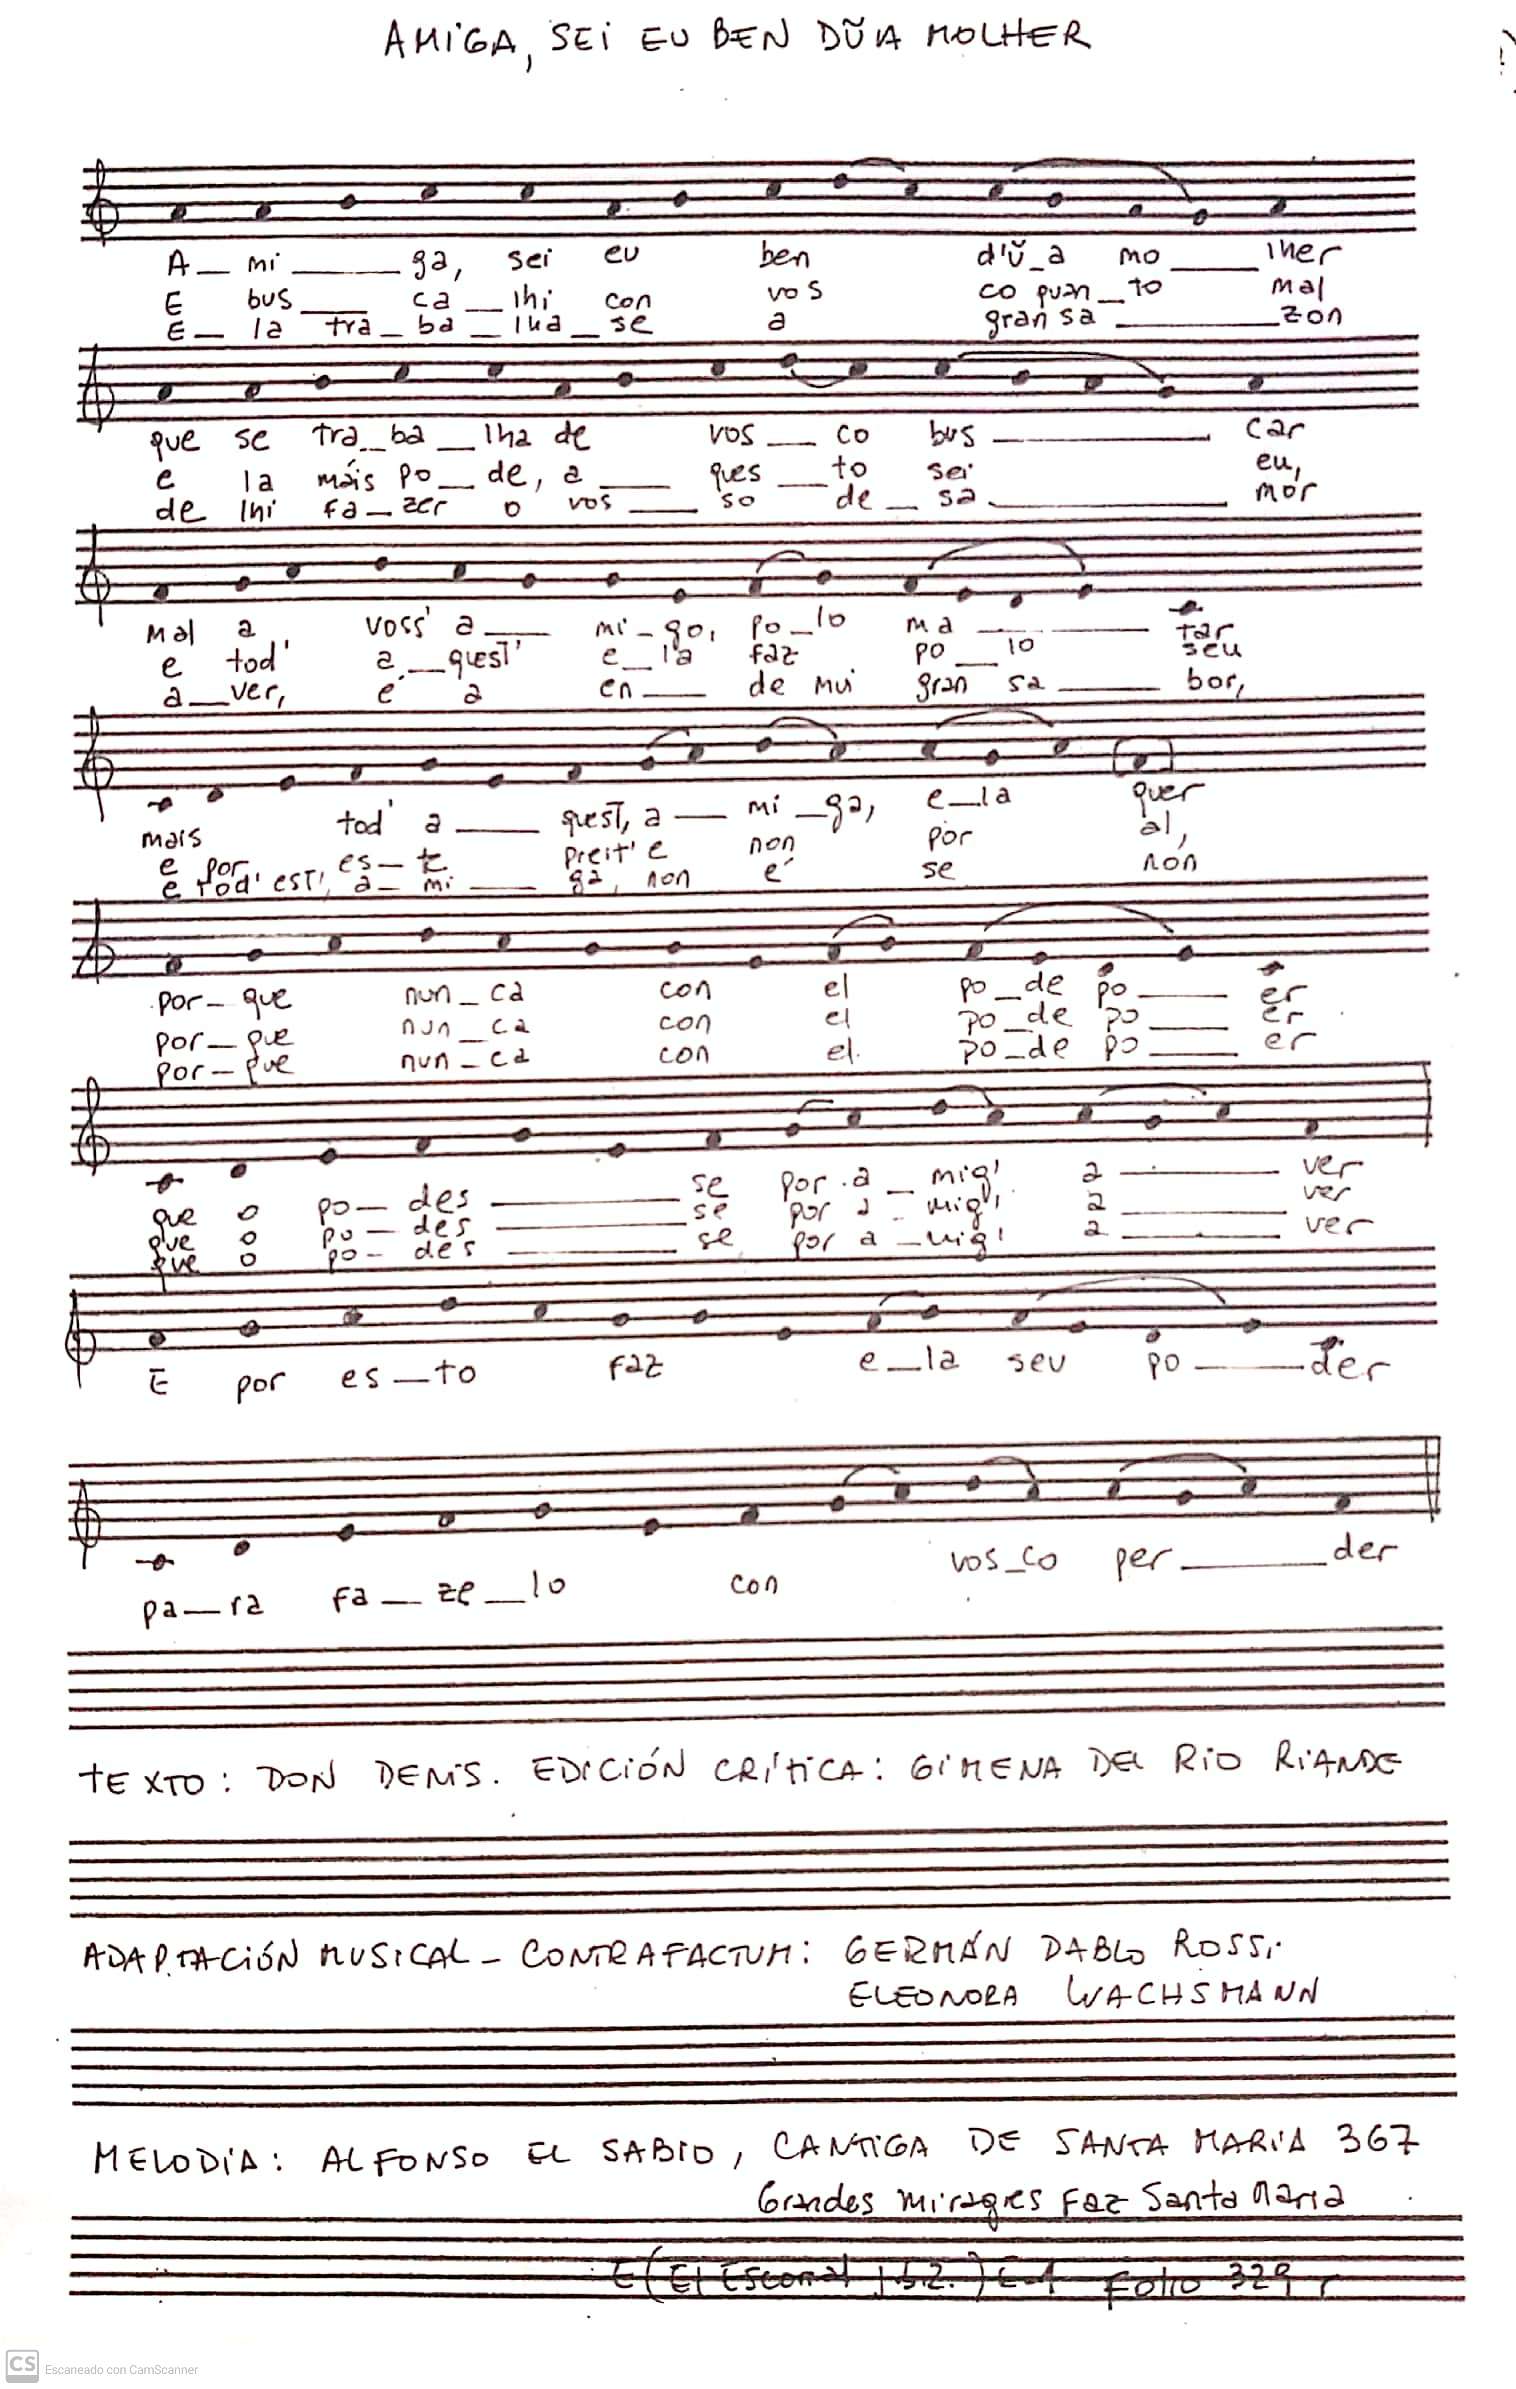 AMIGA, SEI EU BEN DŨA MOLHER
A_ mi ___ ga, sei eu ben d'ũ_a mo ___ lher
E bus ___ ca _ lhi con vos co quan_to mal
E_ la tra_ba_lha_se a gran sa ___ zon
que se tra_ba_lha de vos _ co bus ___ car
e la máis po_de, a ___ ques _ to sei eu,
de lhi fa_zer o vos ___ so de_sa ___ mor
mal a voss' a ___ mi_go, po_lo ma ___ tar
e tod' a_quest' e_la faz po_lo seu
a_ver, e a en ___ de mui gran sa ___ bor,
mais tod' a ___ quest, a ___ mi_ga, e_la quer
e por es_te preit' e non por al,
e tod' est', a_mi ___ ga, non é se non
por_que nun_ca con el po_de po ___ er
por_que nun_ca con el po_de po ___ er
por_que nun_ca con el. po_de po ___ er
que o po_des ___ se por a_mig' a ___ ver
que o po_des ___ se por a_mig' a ___ ver
que o po_des ___ se por a_mig' a ___ ver
E por es_to faz e_la seu po ___ der
pa_ra fa_ze_lo con vos_co per ___ der
TEXTO: DON DENIS. EDICIÓN CRÍTICA: GIMENA DEL RIO RIANDE
ADAPTACIÓN MUSICAL_ CONTRAFACTUM: GERMÁN PABLO ROSSI
ELEONORA WACHSMANN
MELODIA: ALFONSO EL SABIO, CANTIGA DE SANTA MARIA 367
Grandes miragres faz Santa Maria
E (El Escorial j.b.2.) E-1 Folio 329 r
CS Escaneado con CamScanner